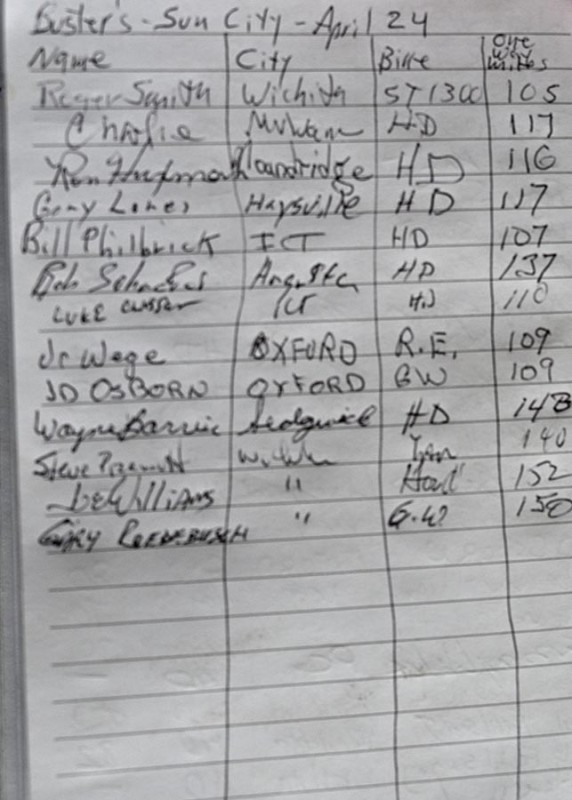 Buster's - Sun City - April 24
Name City Bike one way miles
Roger Smith Wichita ST1300 105
Charlie Mulvane HD 117
Ron HD 116
Gary Lines Haysville HD 117
Bill Philbrick ICT HD 107
Bob Augusta HD 137
LUKE ICT HD 110
Jr Wege OXFORD R.E. 109
JD OSBORN OXFORD GW 109
Wayne Barrie Sedgwick HD 148
Steve Wichita 140
Joe Williams " 152
GARY " G.W 150